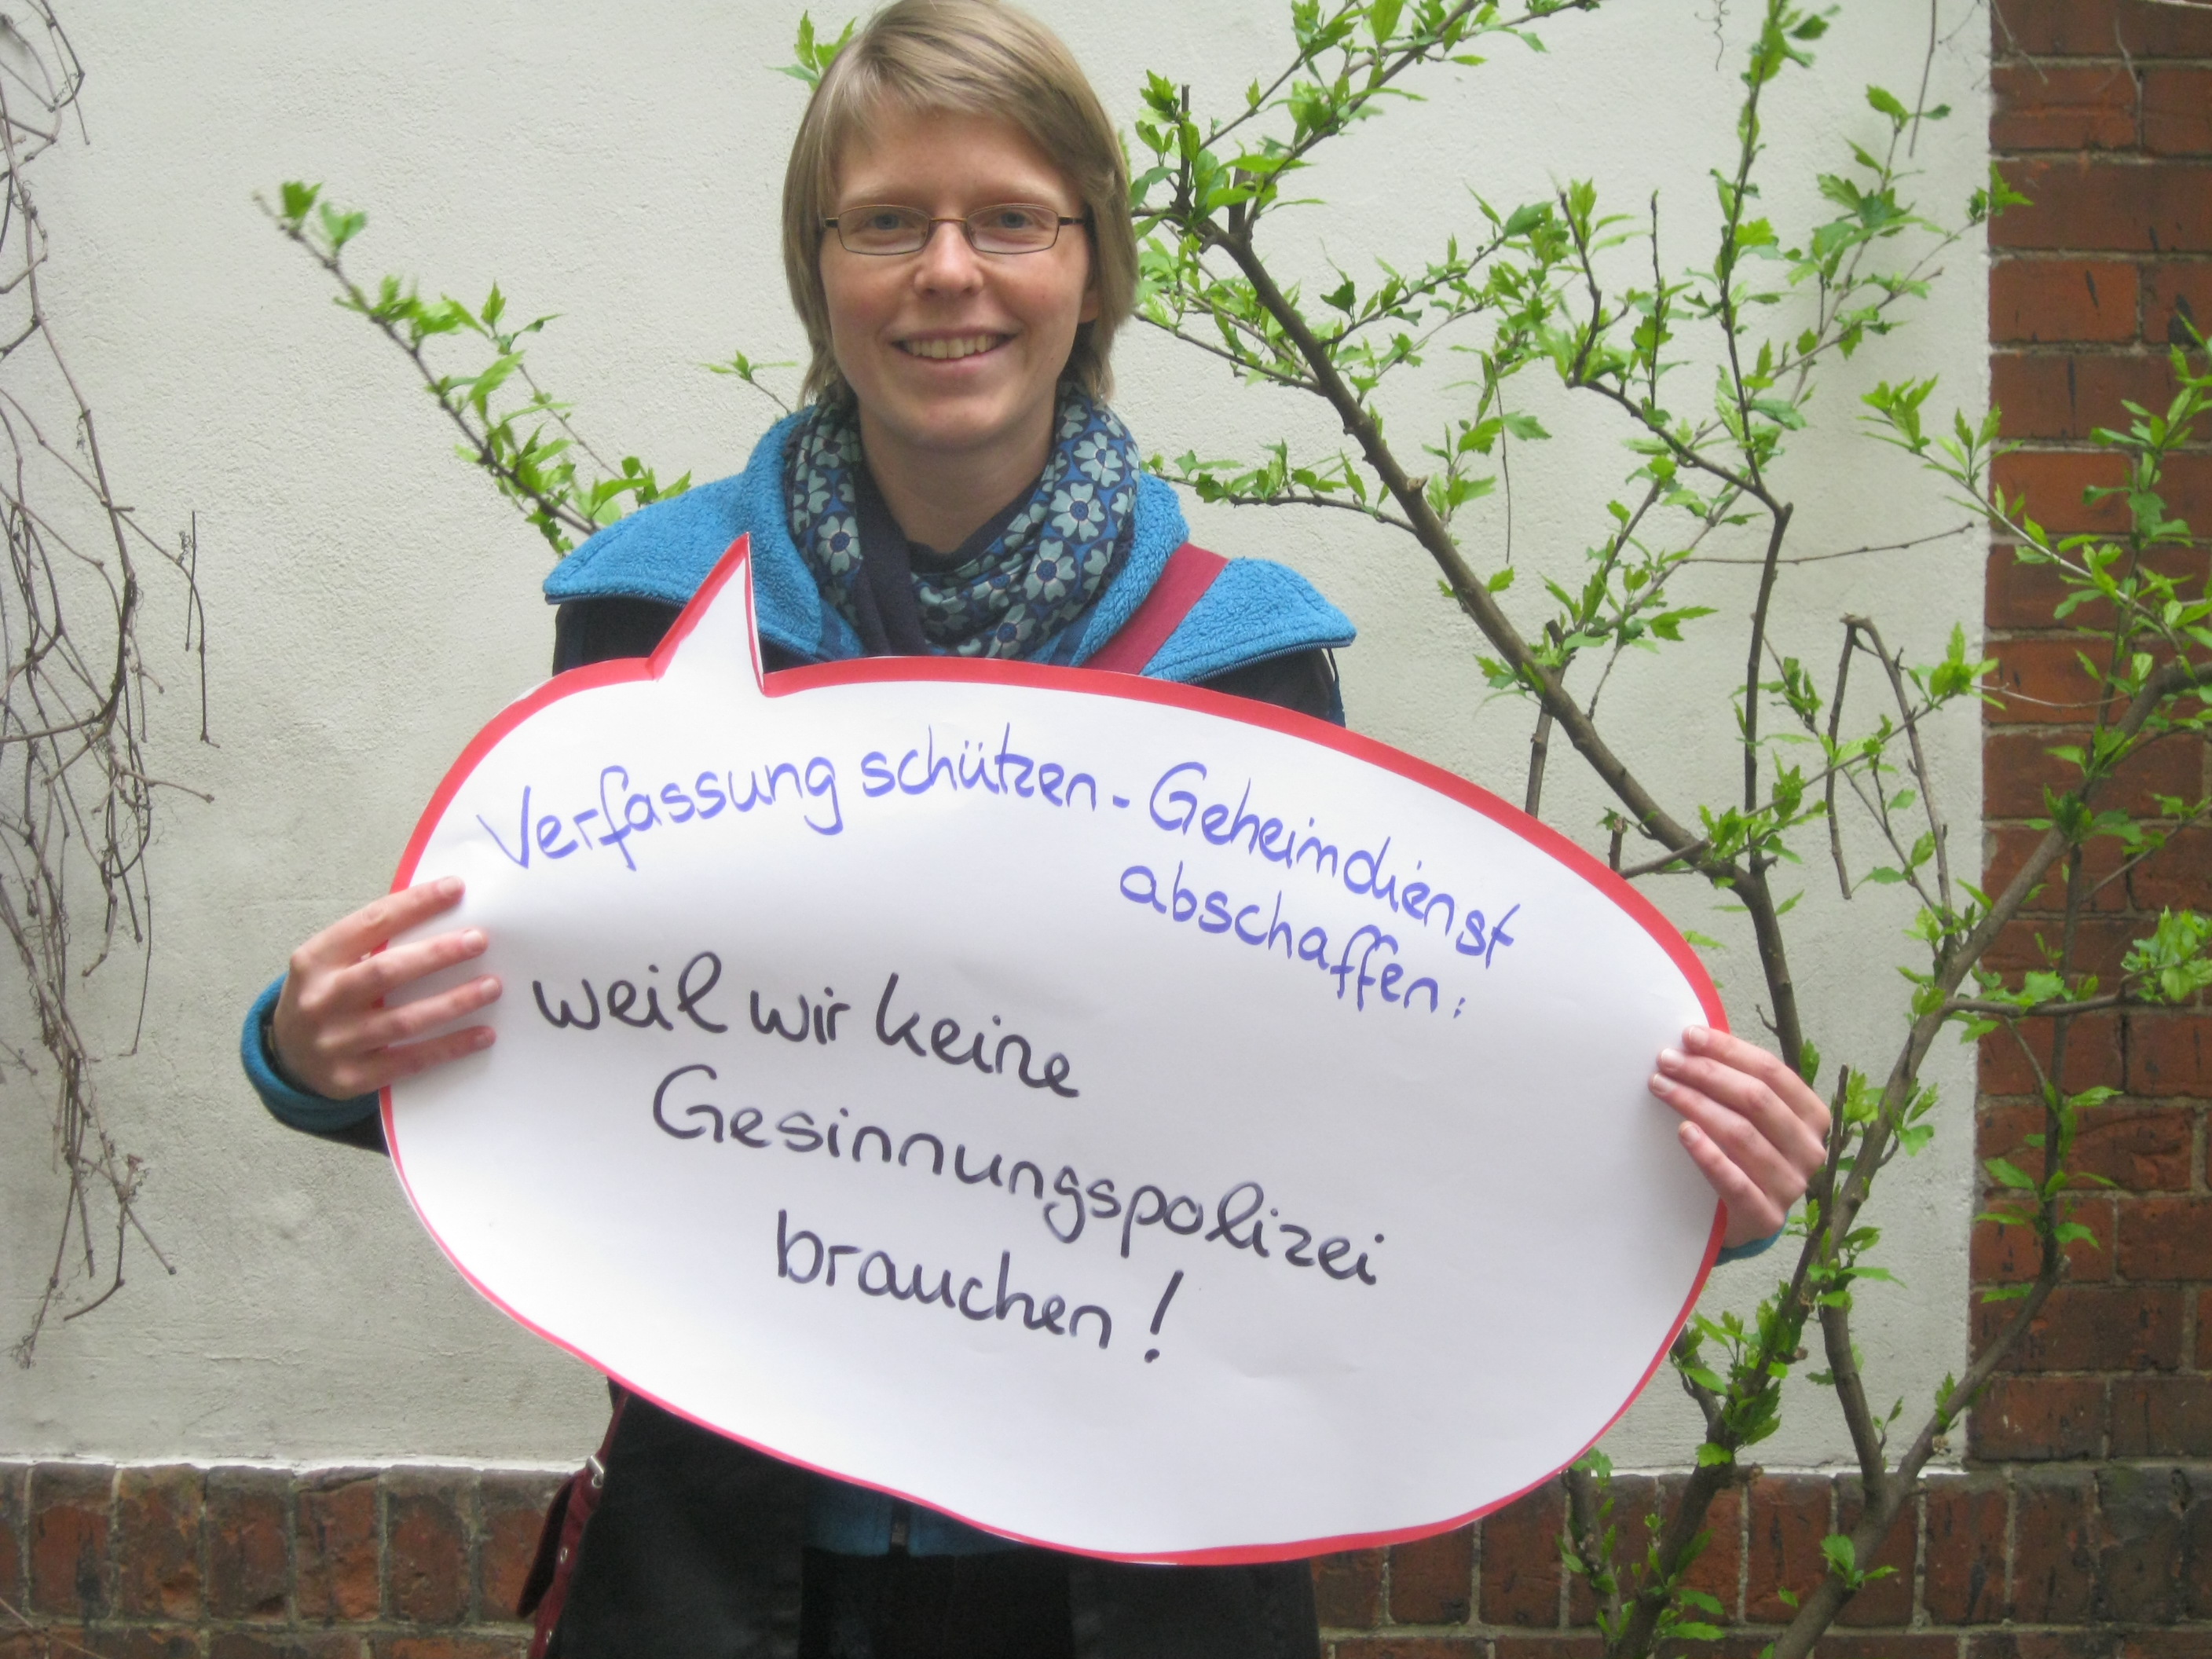 Verfassung schützen - Geheimdienst
abschaffen:
weil wir keine
Gesinnungspolizei
brauchen!